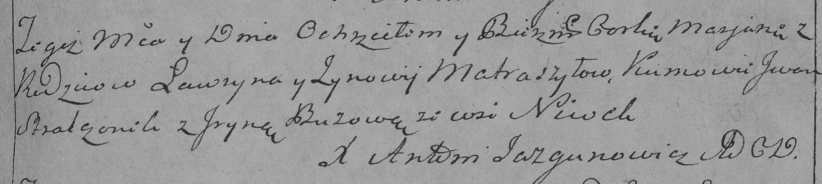 Tegż Mca y Dnia Ochrzciłem y Bierzm Corkę Marjanę z
Rodzicow Ławryna y Zynowij Matraszyłow, Kumowie Jwan
Stralczonik z Jryną Buzową ze wsi Niwek
X Antoni Jazgunowicz